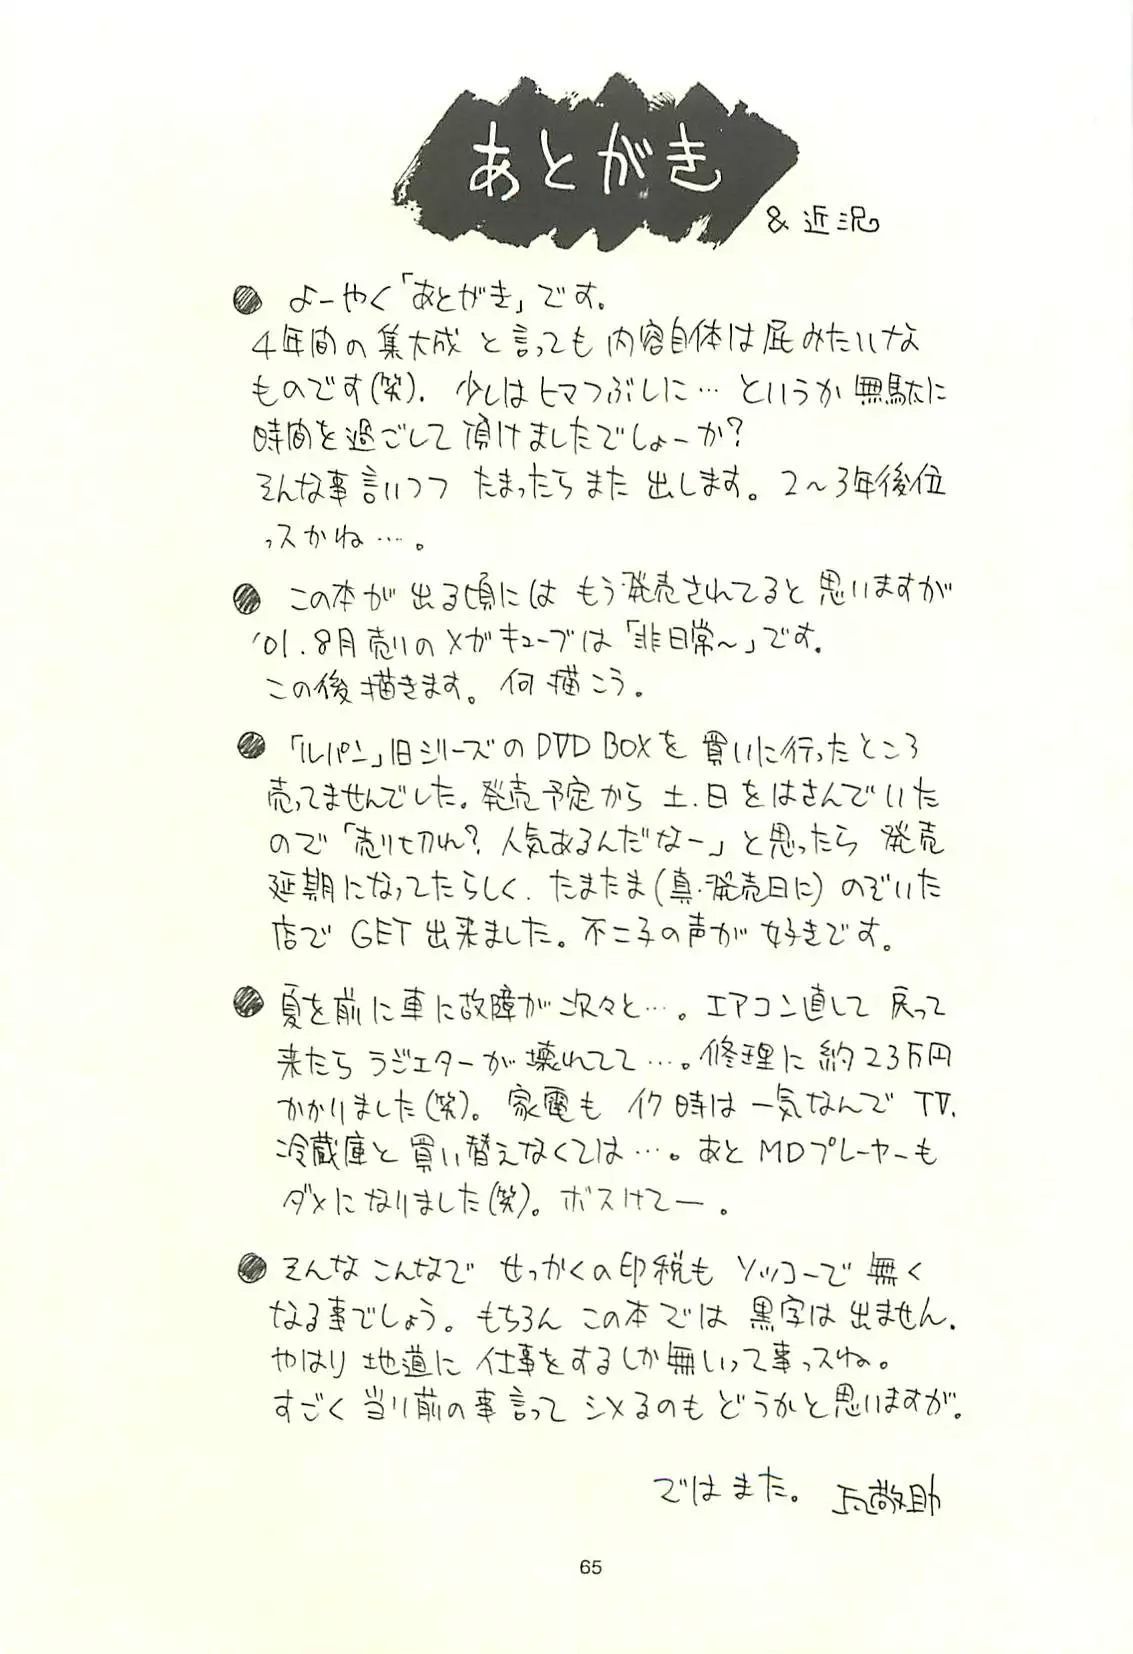 あとがき
& 近況
● よーやく「あとがき」です。
4年間の集大成と言っても内容自体は屁みたいな
ものです(笑). 少しはヒマつぶしに…というか無駄に
時間を過ごして頂けましたでしょーか?
そんな事言いつつ たまったらまた出します。2〜3年後位
っスかね…。
● この本が出る頃には もう発売されてると思いますが
'01.8月売りのメガキューブは「非日常〜」です。
この後描きます。何描こう。
● 「ルパン」旧シリーズのDVD BOXを買いに行ったところ
売ってませんでした。発売予定から土.日をはさんでいた
ので「売り切れ?人気あるんだなー」と思ったら発売
延期になってたらしく.たまたま(真・発売日に)のぞいた
店でGET出来ました。不二子の声が好きです。
● 夏を前に車に故障が次々と…。エアコン直して戻って
来たらラジエターが壊れてて…。修理に約23万円
かかりました(笑)。家電もイク時は一気なんでTV.
冷蔵庫と買い替えなくては…。あとMDプレーヤーも
ダメになりました(笑)。ボスけてー。
● そんなこんなで せっかくの印税もソッコーで無く
なる事でしょう。もちろんこの本では黒字は出ません.
やはり地道に仕事をするしか無いって事っスね。
すごく当り前の事言ってシメるのもどうかと思いますが。
ではまた。
65